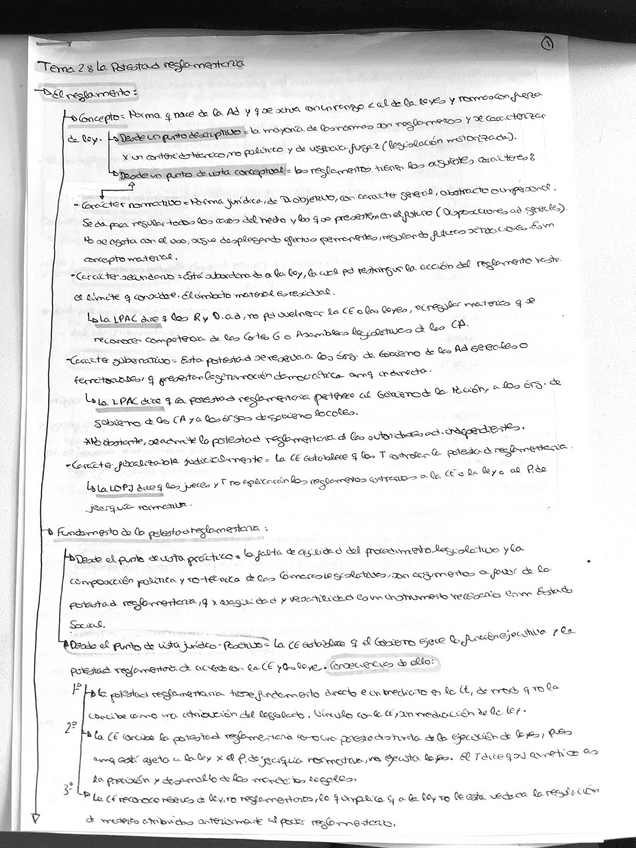 ①
Tema 2: La Potestad reglamentaria
El reglamento:
Concepto = Norma q nace de la Ad y q se sitúa con un rango < al de la leyes y normas con fuerza
de ley. Desde un punto descriptivo = la mayoría de las normas son reglamentos y se caracterizan
x un contenido técnico, no político y de vigencia fugaz (legislación motorizada).
Desde un punto de vista conceptual = los reglamentos tienen los siguientes caracteres:
- Carácter normativo = Norma jurídica, de D. objetivo, con carácter general, abstracto o impersonal.
Se da para regular todos los casos del hecho y los q se presenten en el futuro (Disposiciones ad generales)
No se agota con el uso, sigue desplegando efectos permanentes, regulando futuras situaciones
concepto material.
- Carácter secundario = Está subordinado a la ley, la cual pd restringir la acción del reglamento hasta
el límite q considere. El ámbito material es residual.
La LPAC dice q los R y D. ad, no pd vulnerar la CE o las leyes, ni regular materias q se
reconocen competencia de las Cortes G o Asambleas legislativas d las CA.
- Carácter gubernativo = Esta potestad se reserva a los órg. de Gobierno de las Ad generales o
territoriales, q presentan legitimación democrática aunq indirecta.
La LPAC dice q la potestad reglamentaria pertenece al Gobierno de la Nación, a los órg. de
gobierno de las CA y a los órgs de gobierno locales.
*No obstante, se admite la potestad reglamentaria d las autoridades ad. independientes.
- Carácter fiscalizable judicialmente = La CE establece q los T controlan la potestad reglamentaria.
La LOPJ dice q los jueces y T no aplicarán los reglamentos contrarios a la CE o la ley o al P. de
jerarquía normativa.
Fundamento de la potestad reglamentaria:
Desde el punto de vista práctico = la falta de agilidad del procedimiento legislativo y la
composición política y no técnica de las Cámaras legislativas, son argumentos a favor de la
potestad reglamentaria, q x su agilidad y versatilidad es un instrumento necesario en un Estado
Social.
Desde el Punto de vista jurídico-Positivo = La CE establece q el Gobierno ejerce la función ejecutiva y la
potestad reglamentaria d acuerdo con la CE y las leyes. Consecuencias de ello:
1º La potestad reglamentaria tiene fundamento directo e inmediato en la CE, de modo q no la
concibe como una atribución del legislador. Vínculo con la CE, sin mediación de la ley.
2º La CE concibe la potestad reglamentaria como una potestad distinta de la ejecución de leyes, pues
aunq está sujeto a la ley x el P. de jerarquía normativa, no ejecuta leyes. El T dice q su cometido es
la precisión y desarrollo de los mandatos legales.
3º La CE reconoce reservas de ley, no reglamentarias, lo q implica q a la ley no le está vedada la regulación
d materias atribuidas anteriormente al poder reglamentario.